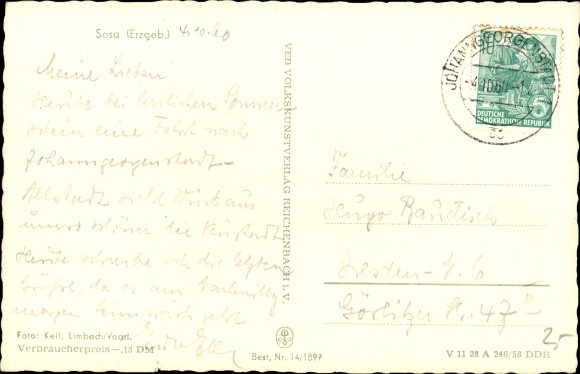 Sosa (Erzgeb.) 4.10.60
Meine Lieben
Heute bei herrlichem Sonnen
schein eine Fahrt nach
Johanngeorgenstadt –
Altstadt sieht aus
die Neustadt
Heute schreibe ich die letzten
Grüße, da es am
morgen heimwärts geht
Foto: Keil, Limbach/Vogtl.
Verbraucherpreis –,15 DM
VEB VOLKSKUNSTVERLAG REICHENBACH I. V
Best. Nr. 14/1897
JOHANNGEORGENSTADT
4.10.60
10
5
DEUTSCHE
DEMOKRATISCHE REPUBLIK
Familie
Hugo Baudisch
Dresden - N. 6
Görlitzer Str. 47
25-
V 11 28 A 246/58 DDR